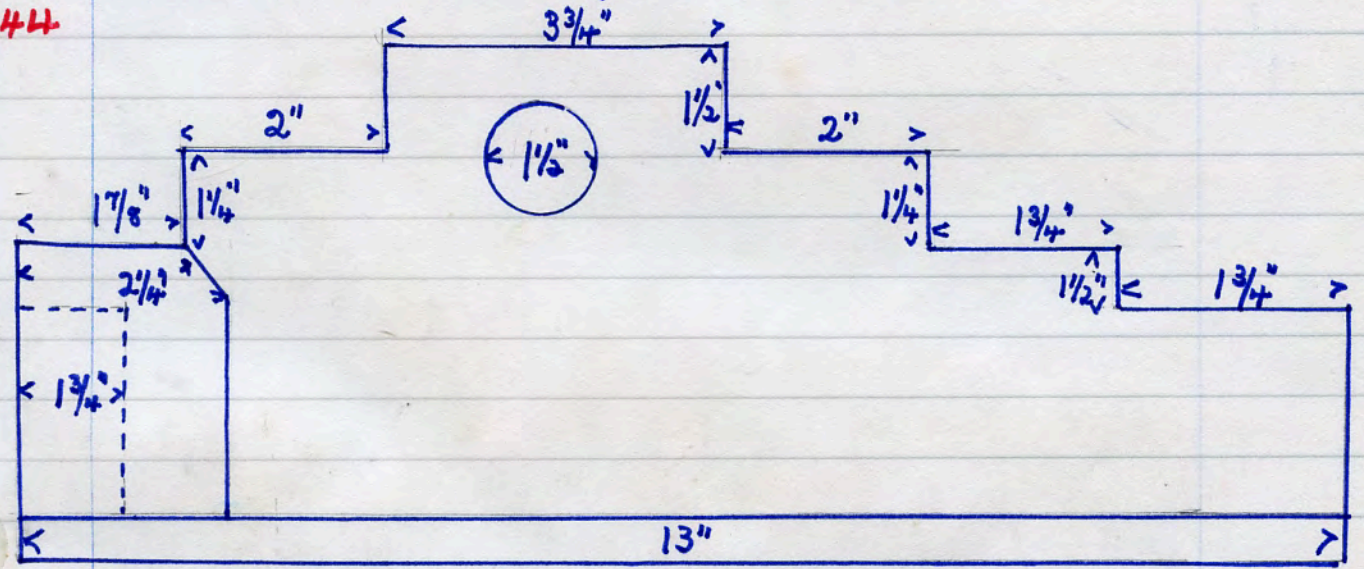 44
3 3/4"
1 1/2"
2"
1 1/2"
2"
1 7/8"
1 1/4"
1 1/4"
1 3/4"
2 1/4"
1 1/2"
1 3/4"
1 3/4"
13"